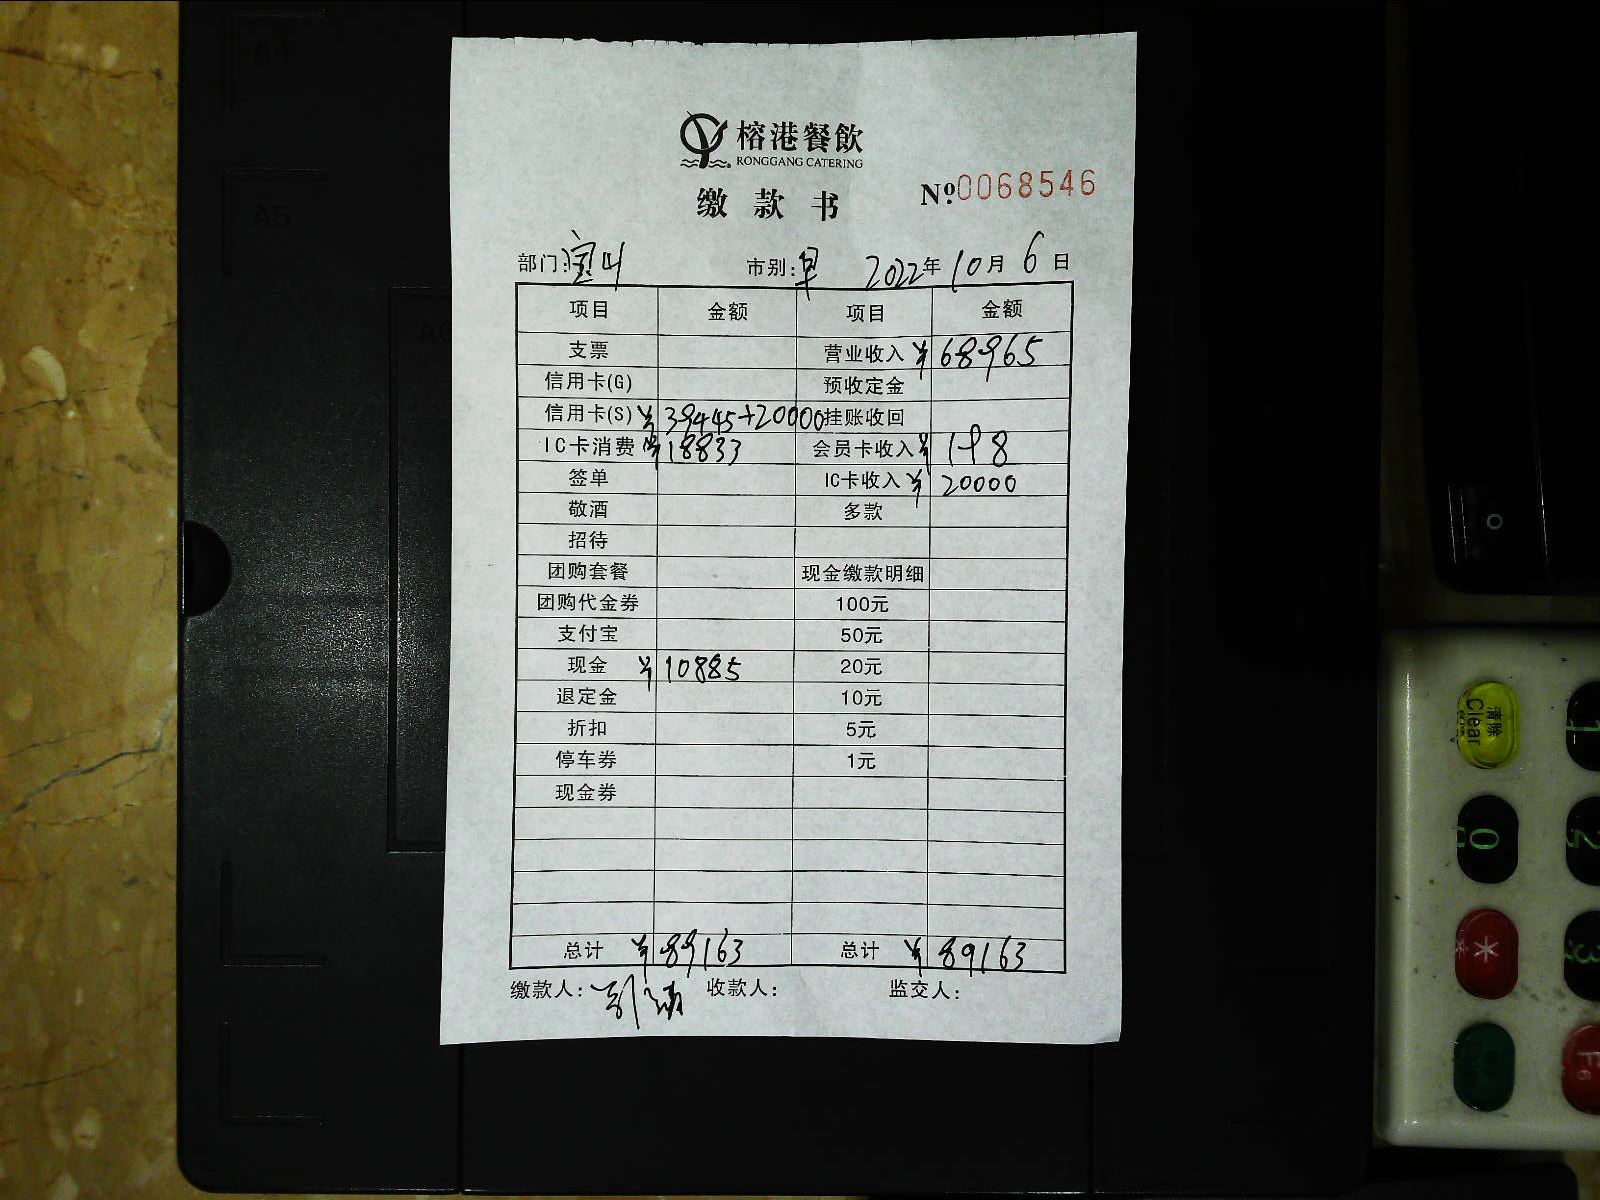 榕港餐飲
RONGGANG CATERING
缴款书
Nº:0068546
部门: 市别:早 2022年10月6日
项目 金额 项目 金额
支票 营业收入 ¥68965
信用卡(G) 预收定金
信用卡(S) ¥39445+20000 挂账收回
IC卡消费 ¥18833 会员卡收入 ¥198
签单 IC卡收入 ¥20000
敬酒 多款
招待
团购套餐 现金缴款明细
团购代金券 100元
支付宝 50元
现金 ¥10885 20元
退定金 10元
折扣 5元
停车券 1元
现金券
总计 ¥89163 总计 ¥89163
缴款人: 收款人: 监交人:
A4
A5
A6
清除
Clear
0
*
1
2
3